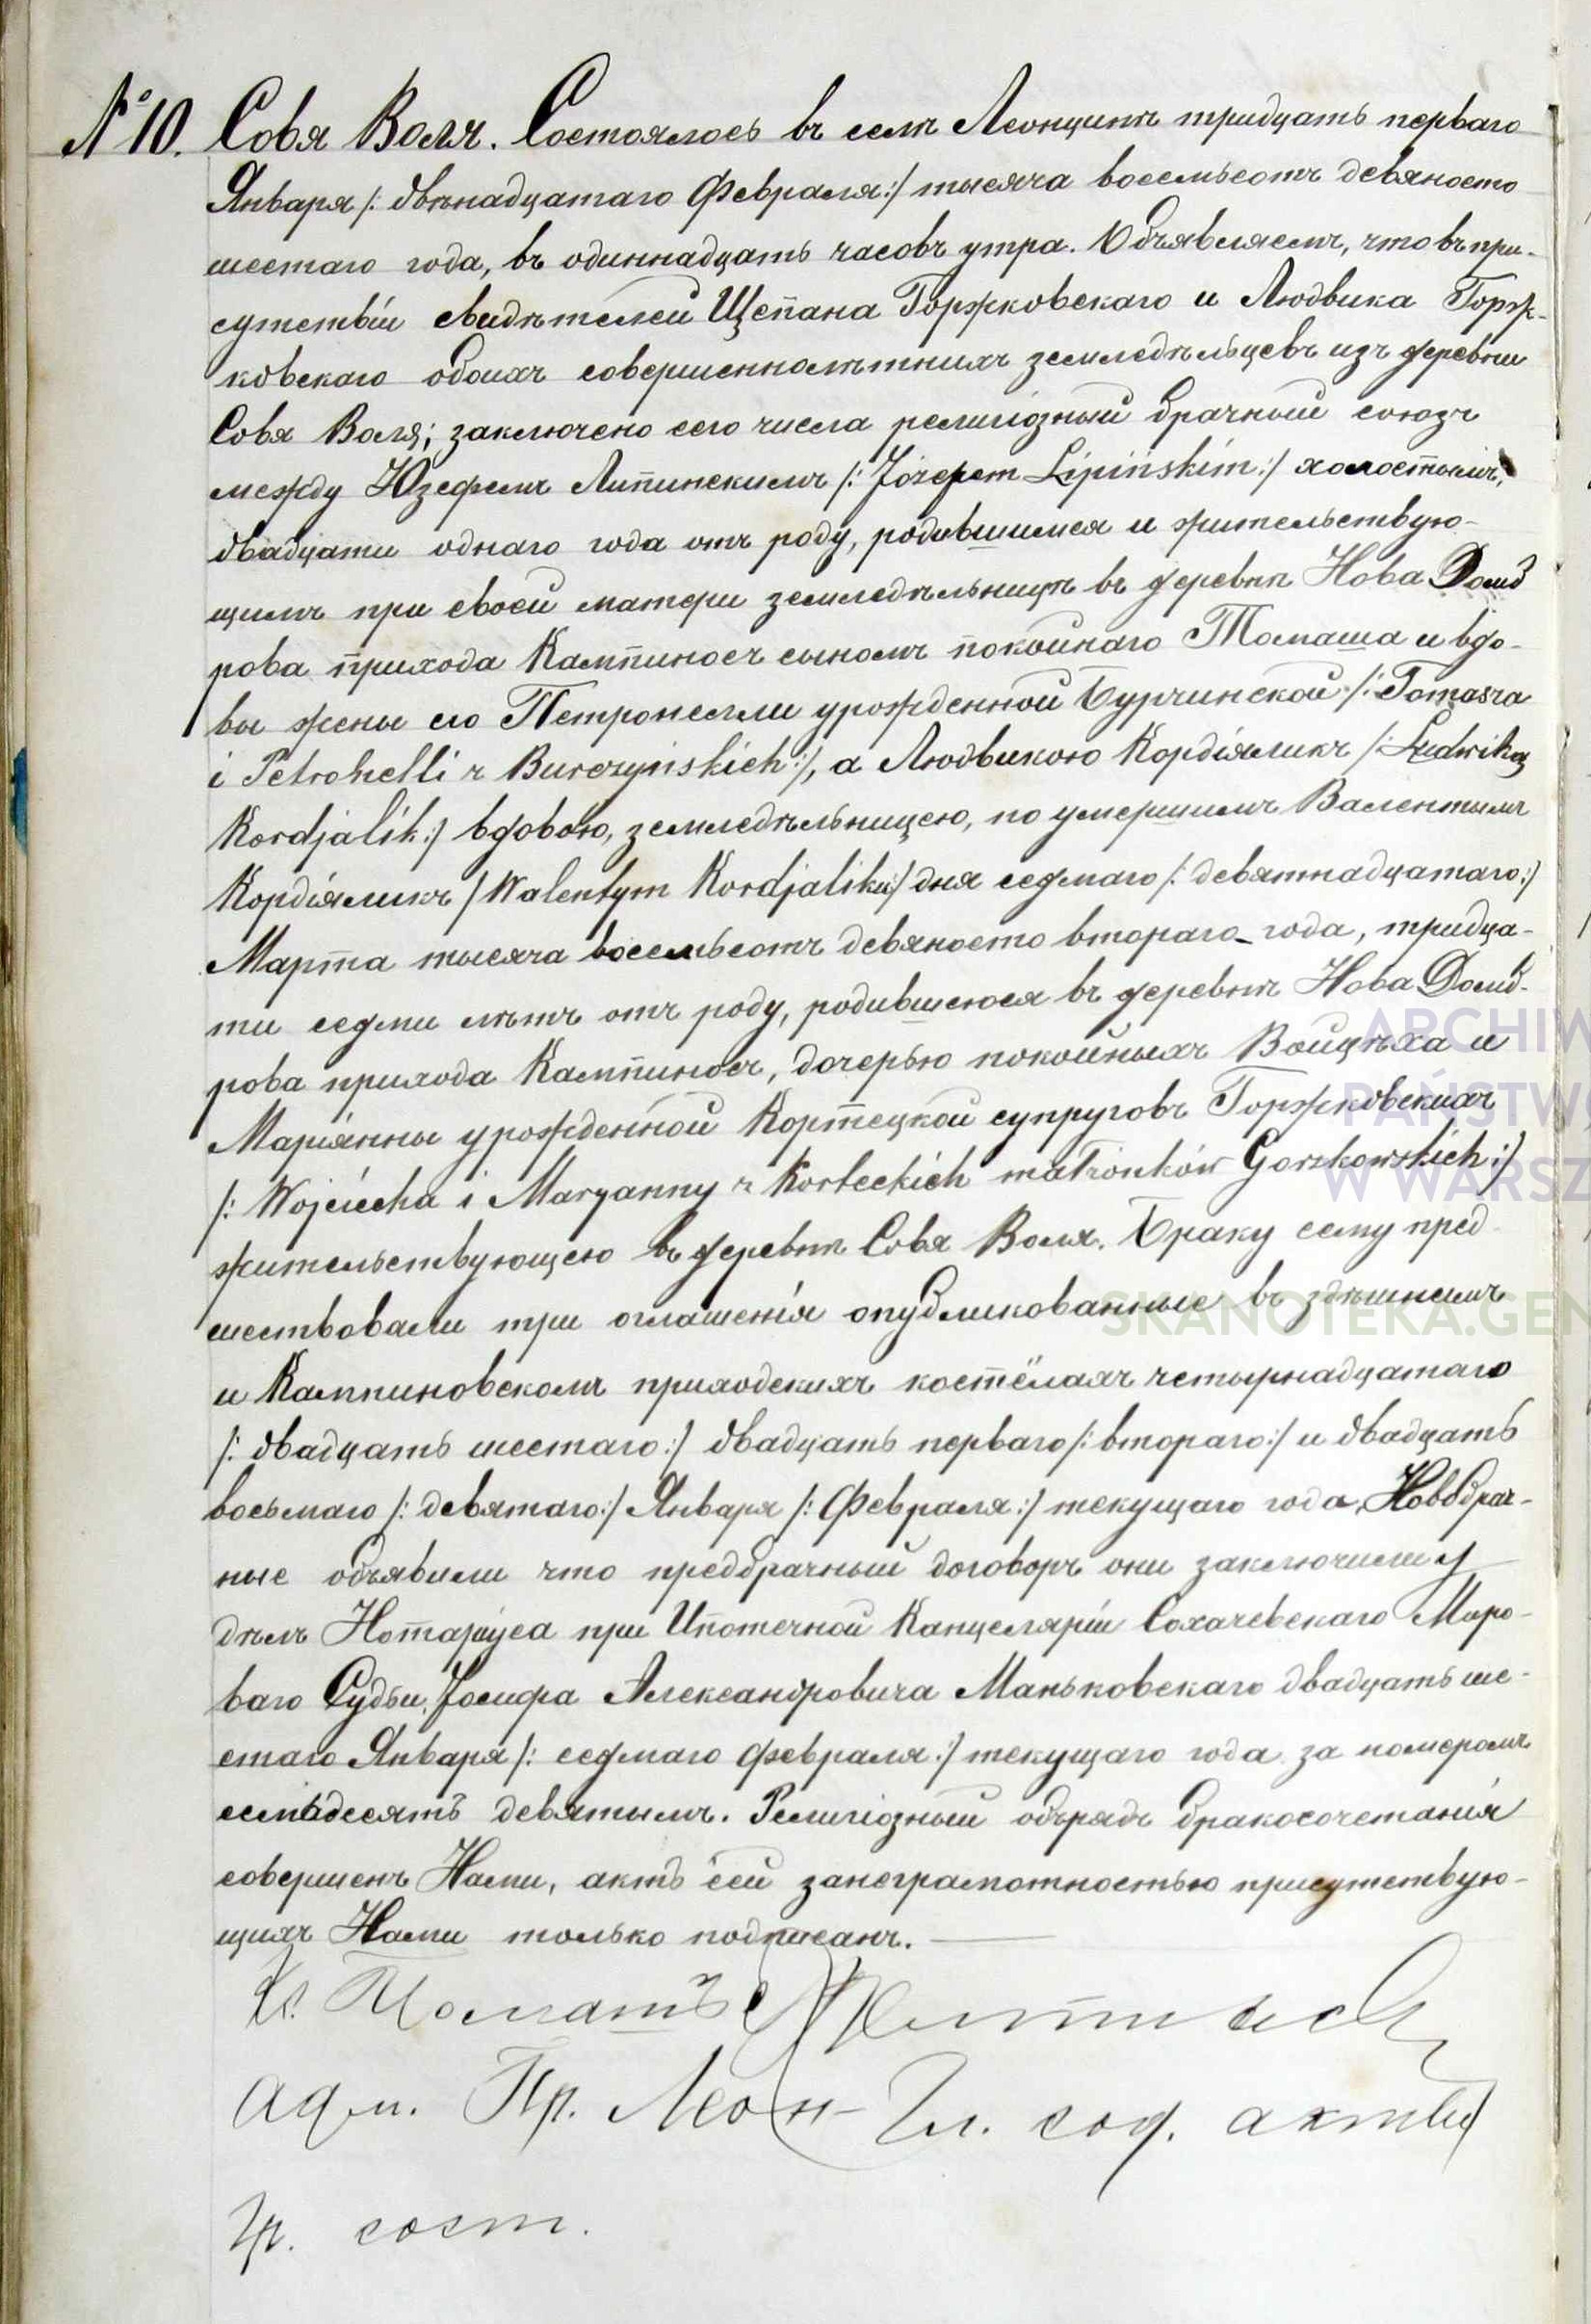 № 10. Совя Воля. Состоялось въ селѣ Леонцинѣ тридцать перваго
Января /: двѣнадцатаго Февраля :/ тысяча восемьсотъ девяносто
шестаго года, въ одиннадцать часовъ утра. Объявляемъ, что въ при-
сутствіи свидѣтелей Щепана Горжковскаго и Людвика Горж-
ковскаго обоихъ совершеннолѣтнихъ земледѣльцевъ изъ деревни
Совя Воля; заключено сего числа религіозный брачный союзъ
между Юзефемъ Липинскимъ /: Józefem Lipińskim :/ холостымъ,
двадцати однаго года отъ роду, родившимся и жительствую-
щимъ при своей матери земледѣльницѣ въ деревнѣ Нова Домб
рова прихода Кампиносъ сыномъ покойнаго Томаша и вдо-
вы жены его Петронелли урожденной Бурчинской /: Tomasza
i Petronelli z Burczyńskich :/, а Людвикою Кордіяликъ /: Ludwiką
Kordjalik :/ вдовою, земледѣльницею, по умершимъ Валентымъ
Кордіяликъ / Walentym Kordjaliku :/ дня седмаго /: девятнадцатаго :/
Марта тысяча восемьсотъ девяносто втораго года, тридца-
ти седми лѣтъ отъ роду, родившеюся въ деревнѣ Нова Домб-
рова прихода Кампиносъ, дочерью покойныхъ Войцѣха и
Маріянны урожденной Кортецкой супруговъ Горжковскихъ
/: Wojciecha i Maryanny z Korteckich małżonków Gorzkowskich :/
жительствующею въ деревнѣ Совя Воля. Браку сему пред-
шествовали три оглашенія опубликованные въ здѣшнемъ
и Кампиновскомъ приходскихъ костёлахъ четырнадцатаго
/: двадцать шестаго :/ двадцать перваго /: втораго :/ и двадцать
восьмаго /: девятаго :/ Января /: Февраля :/ текущаго года. Новобрач-
ные объявили что предбрачный договоръ они заключили у
дѣлъ Нотаріуса при Ипотечной Канцеляріи Сохачевскаго Миро-
ваго Судьи, Іосифа Александровича Маньковскаго двадцать ше-
стаго Января /: седмаго Февраля :/ текущаго года за номеромъ
семьдесятъ девятымъ. Религіозный обрядъ бракосочетанія
совершенъ Нами, актъ сей занеграмотностью присутствую-
щихъ Нами только подписанъ.
Кс.
Адм. Пр. Леон- Гл. сод. акты
гр. сост.
ARCHIW
PAŃSTWO
W WARSZ
SKANOTEKA.GEN